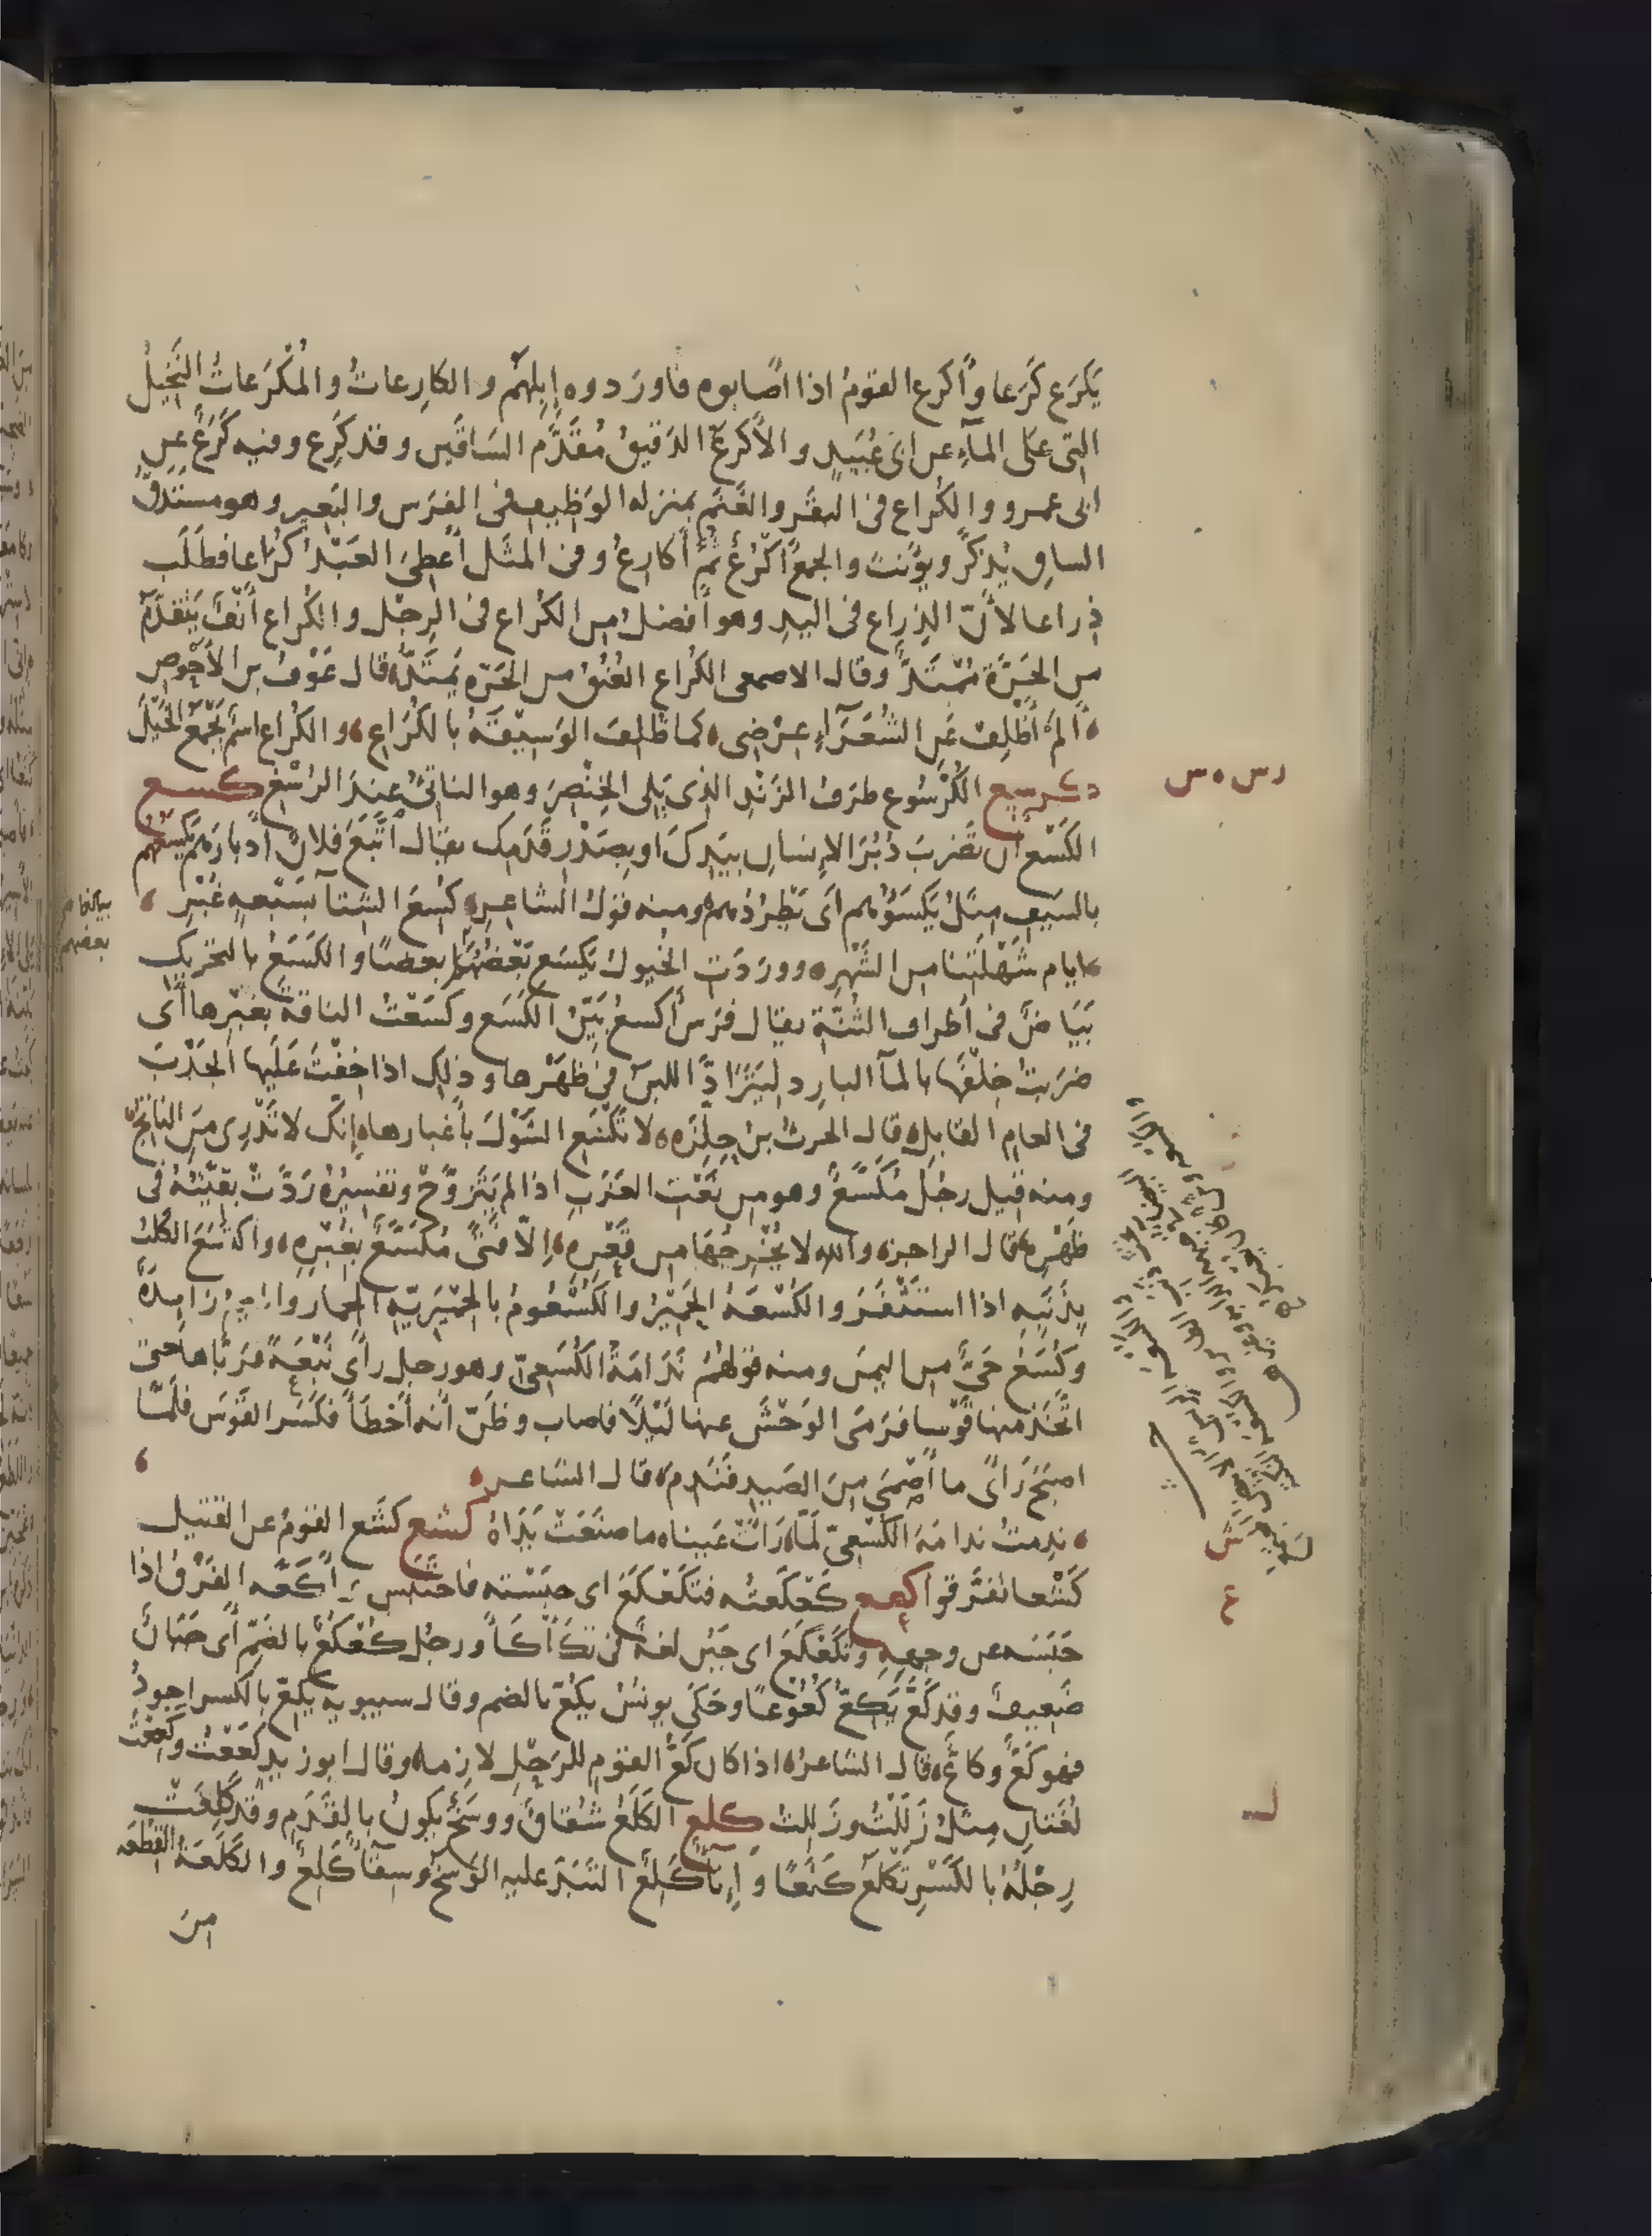 يَكرَع كَرَعا وأكرع القومُ اذا اصابوه فاوردوه إبلهم والكارِعاتُ والمُكْرَعاتُ النَخِيلُ
التى على المآءِ عن ابى عُبَيدٍ والأكرعُ الدَقيقُ مُقَدَّم السَاقَين وقد كَرِع وفيه كَرَعٌ عن
ابى عمرو والكُراع فى البقَر والغَنَم بمنزله الوَظِيف فى الفرَس والبَعير وهو مستدَقّ
الساق يُذكَّر ويؤنث والجمعُ أكْرُعٌ ثُمّ أكارِعُ وفى المثَل أُعطِىَ العَبْدُ كُرَاعا فطَلَب
ذِراعا لأنّ الذِراع فى اليدِ وهو أفضلُ من الكُراع فى الرِجْل والكُراع أنفٌ يَتَقَدّمُ
من الحَرّة مُمْتَدٌّ وقال الاصمعى الكُراع العُنُقُ من الحَرّه يَمتَدُّ قال عَوْفُ بن الأحْوص
ألمْ أَظْلِفْ عَنِ الشُعَرَآءِ عِرْضِى كما ظُلِفَ الوَسِيقَةُ بالكُرَاعِ والكُراع اسم يَجْمَع الخَيْلَ
كرسع الكُرْسُوع طرَفُ الزَنْدِ الذى يَلِى الخِنْصِرَ وهو الناتئُ عِندَ الرُسْغ كسع
الكَسْع أن تَضْربَ دُبُرَ الإنسان بيَدِكَ او بصَدْر قَدَمِك يقال اتَّبَعَ فلانٌ أدبارَهم يَكْسَعُهم
بالسَيف مِثلُ يَكسَؤُهم اى يَطْرُدُهم ومنه قولُ الشاعر كُسِعَ الشِتآء بسَبْعهٍ غُبْرِ
ايام شَهْلَتِنا من الشَهْرِ ووَرَدَت الخُيول يَكْسَع بَعْضُها بعضًا والكَسَعُ بالتحريك
بَيَاضٌ فى أطراف الثُنّة يقال فرَس أكسعُ بَيِّنُ الكَسَع وكسَعْتُ الناقةَ بغُبْرها أى
ضرَبتُ خِلْفَها بالمآ البارد ليَتَرادّ اللبنُ فى ظَهْرها وذلِك اذا خِفْتَ عَلَيها الجَدْبَ
فى العام القابِل قال الحرث بن حِلِّزَه لا تَكْسَعِ الشَوْلَ بأغبارها إنك لا تَدْرِى مَنِ الناتجُ
ومنه قيل رجُلٌ مُكَسَّعٌ وهو من نَعْت العَزَبِ اذا لم يَتَزوّجْ وتفسيرُهُ رَدّتْ بَقِيّتُه فى
ظَهْرِه قال الراجز والله لا يُخْرِجُهَا من قَعْرِه إلّا فَتًى مُكَسَّعٌ بغُبْرِهِ واكتسَعَ الكلبُ
بذَنَبِه اذا استَثْفَرَ والكُسْعَهُ الحَمِيْرُ والكُسْعُومُ بالحِمْيَرِيّه الحمار والميم زايدةٌ
وكُسَعُ حَىٌّ من اليمن ومنه قولهُمْ نَدَامَةُ الكُسَعِىّ وهو رجل رأى نَبْعَةً فرَبّاها حتى
اتَّخَذ منها قَوْسا فرَمَى الوَحْشَ عنها لَيْلًا فاصاب وظَنّ انه أخْطَأَ فكَسَر القَوْسَ فلَمّا
اصبَحَ رَأىَ ما أصْمَى مِنَ الصَيدِ فنَدِمَ قال الشاعر
ندِمتُ ندامَةَ الكُسَعِىّ لمّا رَأتْ عَيناه ما صَنَعَتْ يَدَاهُ كشع كشَع القومُ عن القتيل
كَشْعا تفرّقوا كعع كَعْكَعتُه فتكَعْكَعَ اى حبَسْته فاحتَبَس وأكَعَّه الفَرَقُ اذا
حَبَسَه عن وجهِهِ وتكَعْكَعَ اى جَبُن لغةٌ فى تكَأْكَأَ ورجُل كُعْكُعٌ بالضَمّ أى جَبَانٌ
ضَعِيفٌ وقد كَعَّ يَكِعُّ كُعُوعًا وحَكَى يونسُ يَكُعّ بالضم وقال سيبويه يَكِعّ بالكسر اجودُ
فهو كَعٌّ وكاعٌّ قال الشاعرُ اذا كان كَعُّ القومِ للرَحْلِ لازِمه وقال ابو زيد كَعَعْتُ وكَعِعْتُ
لُغَتانِ مِثلُ زَلَلْتُ وزَلِلْتُ كلع الكَلَعُ شُقاقٌ ووسَخٌ يكونُ بالقَدَم وقد كَلِعَتْ
رِجْلُهُ بالكَسْرِ تَكْلَعُ كلَعًا وإناءٌ كَلِعٌ التَبَدَ عليه الوَسَخ وسِقَآءٌ كَلِعٌ والكَلَعَةُ القِطْعَه
مِنَ